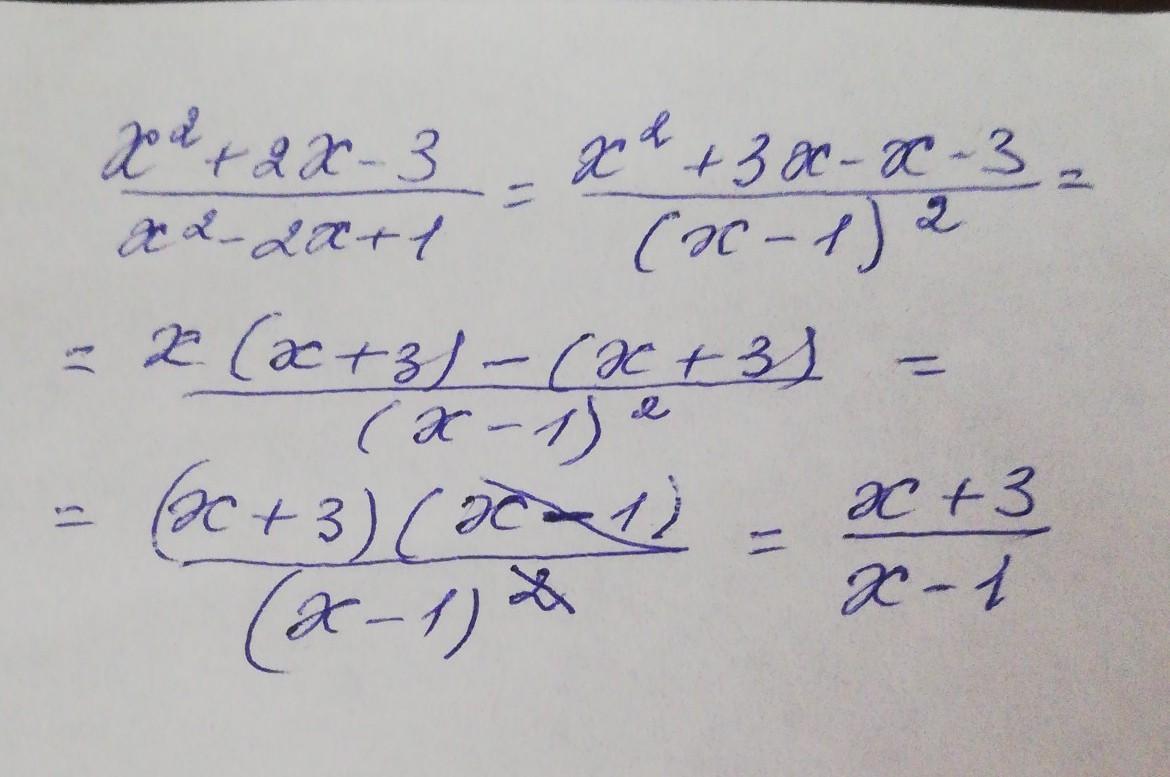 x² + 2x - 3 / x² - 2x + 1 = x² + 3x - x - 3 / (x - 1)² =
= x (x + 3) - (x + 3) / (x - 1)² =
= (x + 3) (x - 1) / (x - 1)² = x + 3 / x - 1